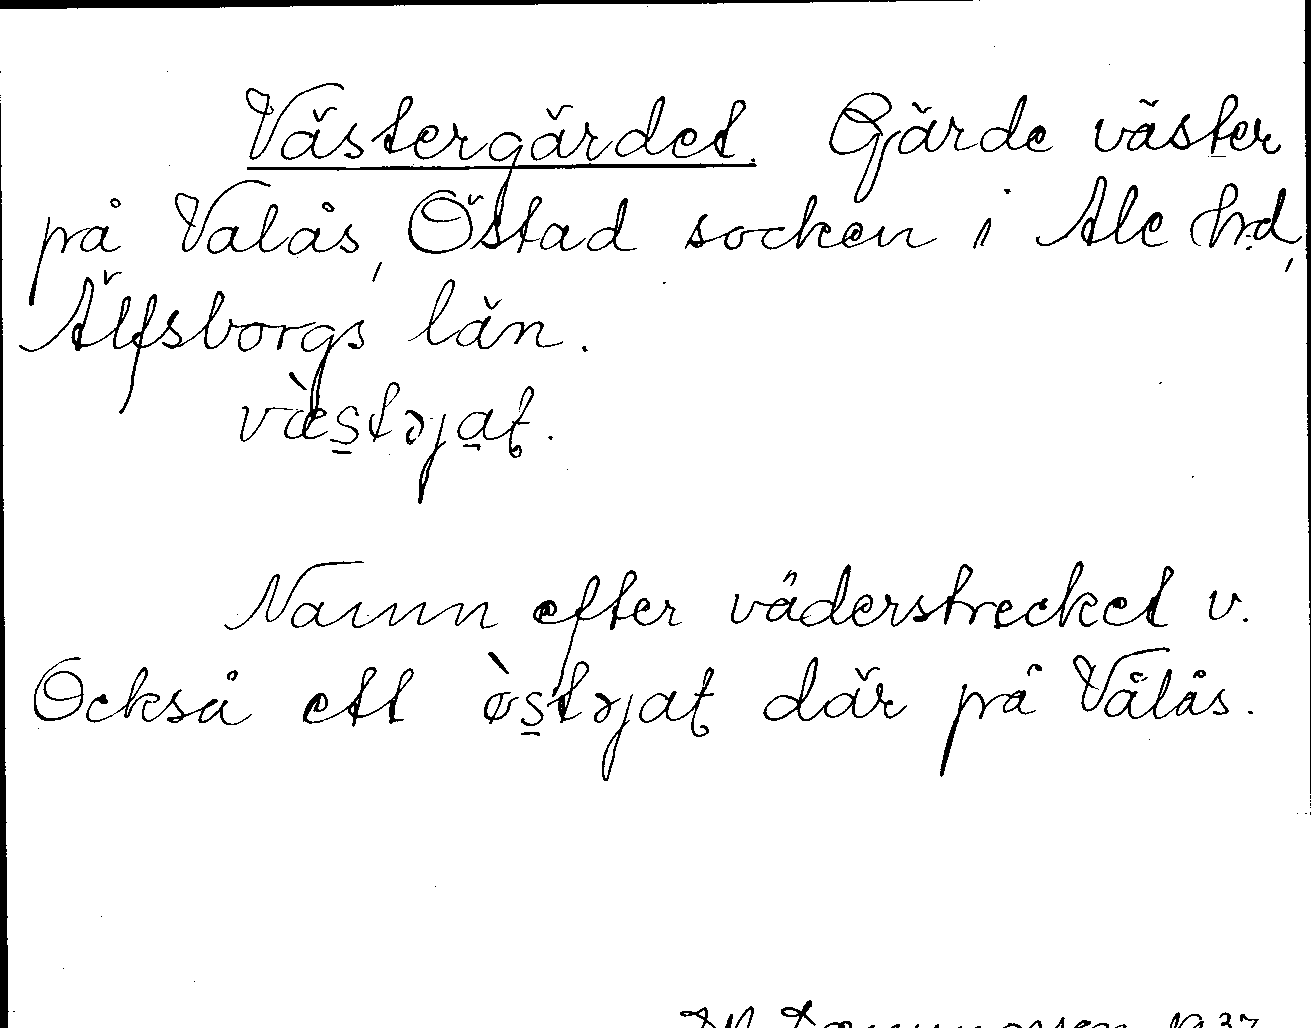 Västergärdet. Gärde väster
på Valås, Östad socken i Ale hd,
Älfsborgs län.
væ̀s̠tɔja̠t.
Namn efter väderstrecket v.
Också ett ø̀s̠tɔjat där på Vålås.
1937